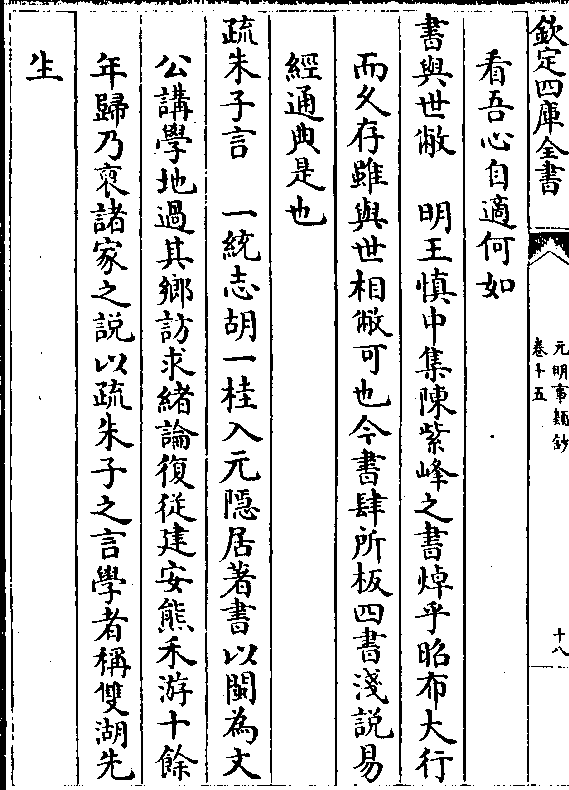 欽定四庫全書
元明事類鈔
卷十五
十八
看吾心自適何如
書與世敝　明王慎中集陳紫峰之書焯乎昭布大行
而久存雖與世相敝可也今書肆所板四書淺説易
經通典是也
疏朱子言　一統志胡一桂入元隱居著書以閩為文
公講學地過其鄉訪求緒論復從建安熊禾游十餘
年歸乃裒諸家之説以疏朱子之言學者稱雙湖先
生